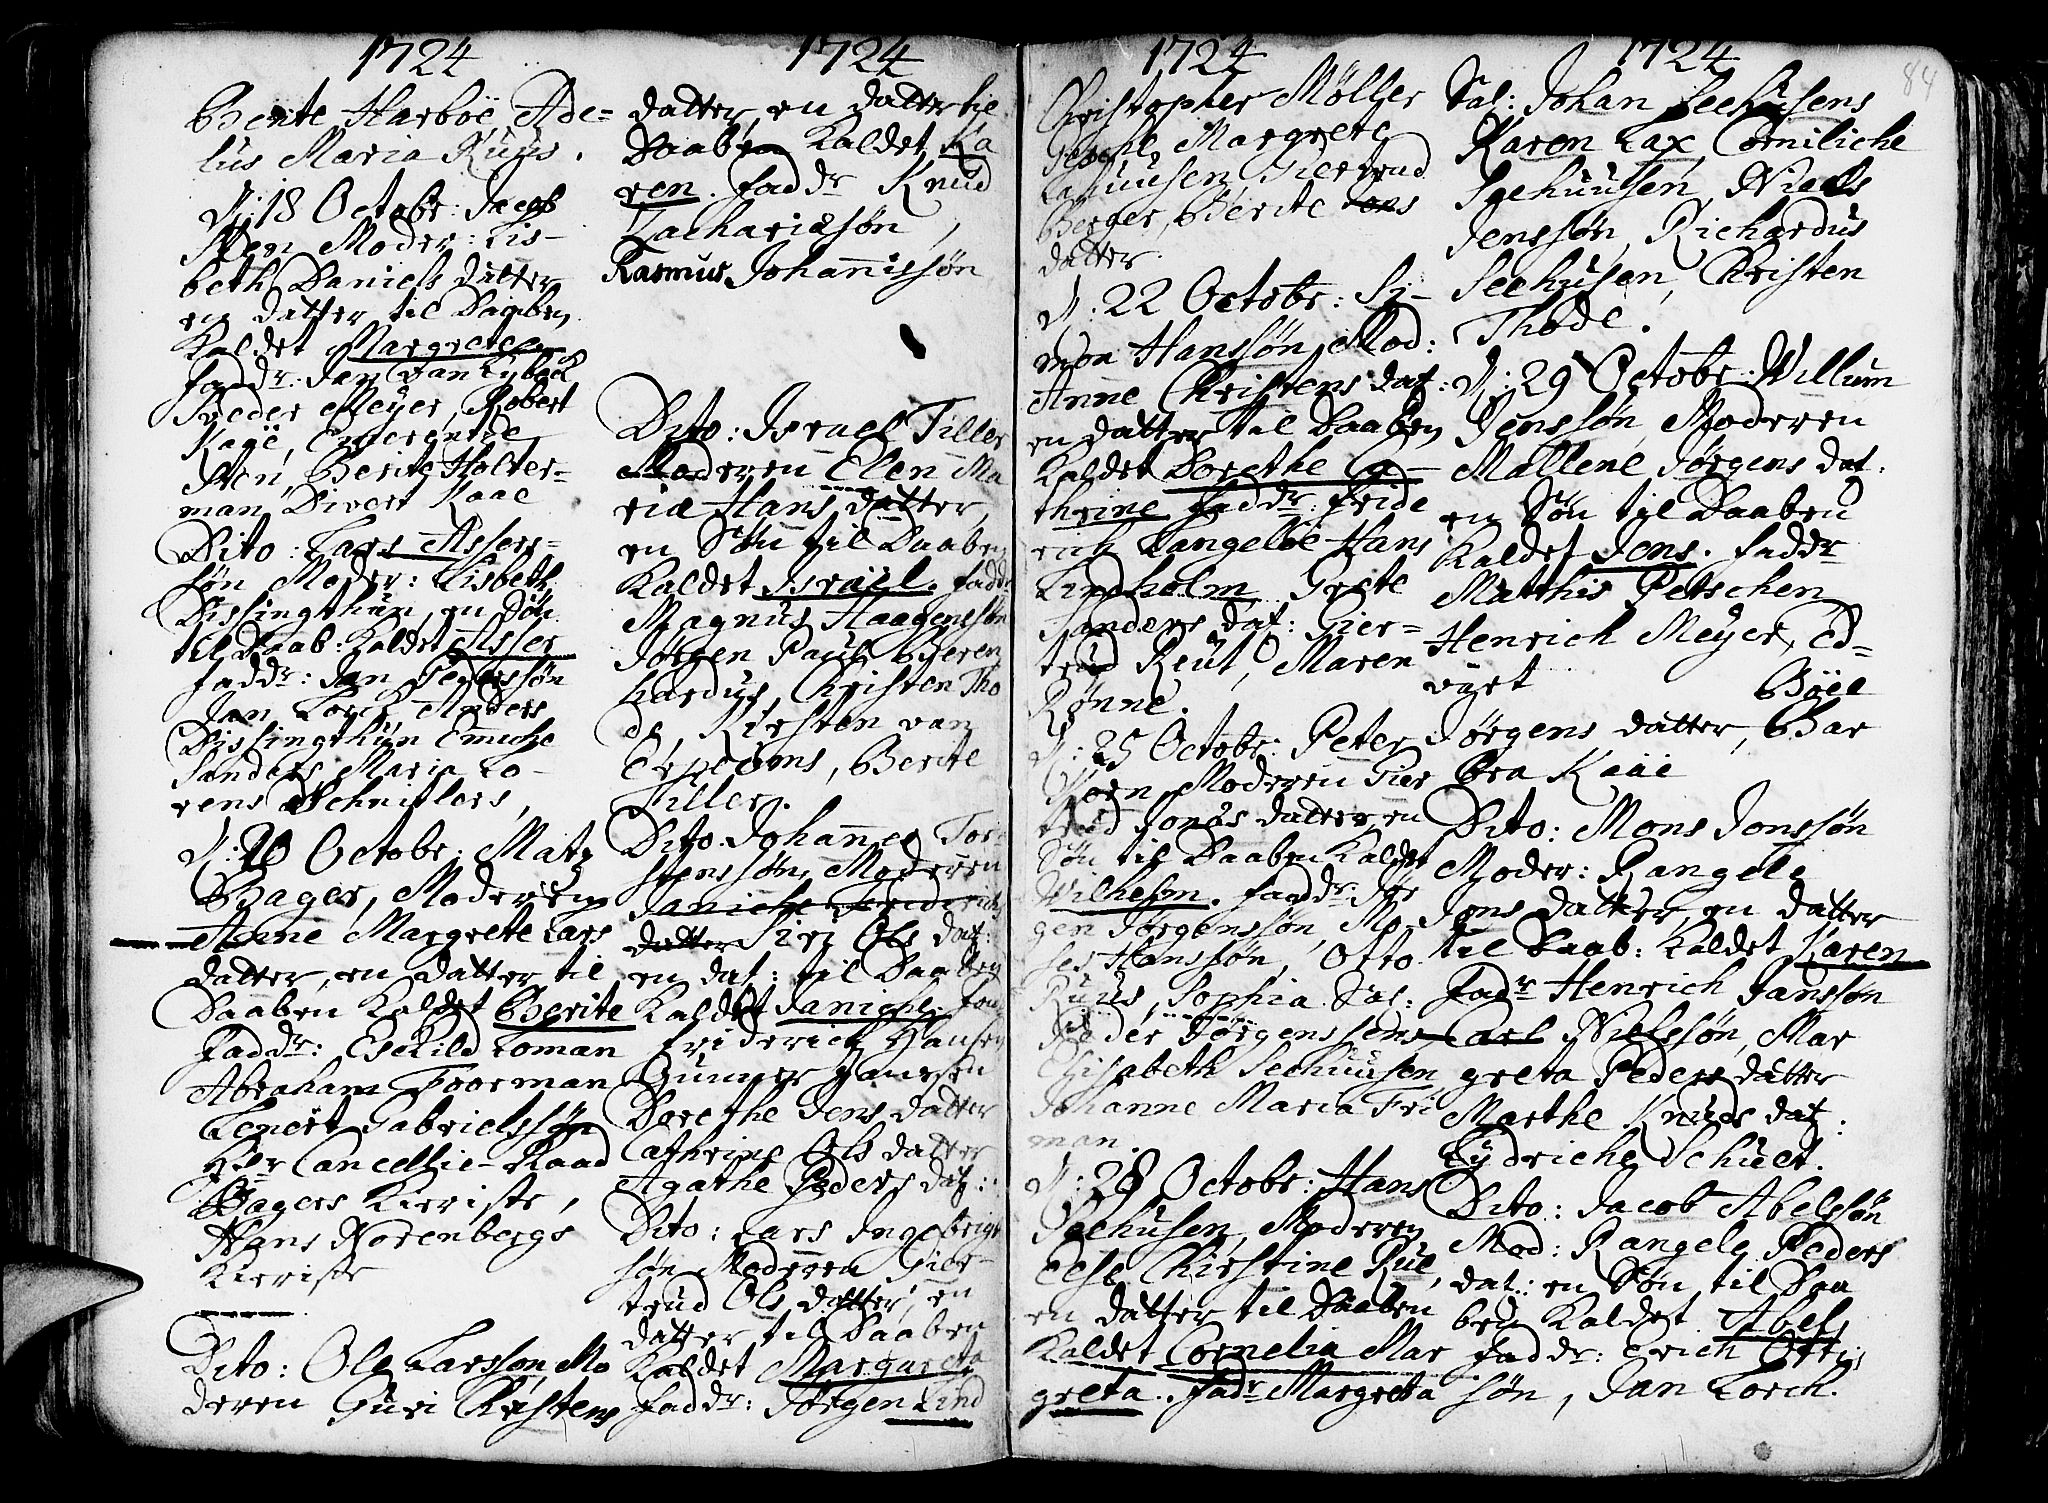 1724
Berite Harboe Ade-
lus Maria Ruus.
D: 18 Octobr: Jacob
Sten Moder: Lis-
beth Daniels datter
en datter til Daaben
Kaldet Margrete
Faddr: Jan van Lybeck
Meyer, Robert
Kaae,
Sten, Berite Holter-
man, Divert Kaae
Dito: Lars Assers-
søn Moder: Lisbeth
Dissingthun, en Søn
til Daab: Kaldet Asser
Faddr: Jan Pederssøn
Jan Lorch, Anders
Dissingthun Emiche
Sanders, Maria Lo-
rens Schnitlers,
D: 20 Octobr: Matz
Bager, Moderen
Anne Margrete Lars
datter, en datter til
Daaben Kaldet Berite
Faddr: Eskild Loman
Abraham Foorman
Lenert Gabrielssøn
Hr Cancellie-Raad
Bagers Kieriste,
Hans Norenbergs
Kieriste
Dito: Ole Larssøn, Mo
deren Guri Christens
1724
datter, en datter til
Daaben Kaldet Ka
ren. Faddr Knud
Zachariæsøn,
Rasmus Johannissøn
Dito: Israel Tiller
Moderen Elen Ma
ria Hans datter,
en Søn til Daaben
Kaldet Israel. Faddr
Magnus Haagenssøn
Jørgen Paul Geren
hardus, Christen Tho
de, Kirsten van
Erpecoms, Berite
Tiller.
Dito: Johannes Tor-
stenssøn, Moderen
Janiche Friderichs
datter Siri Ols dat:
en dat: til Daaben
Kaldet Janiche. Fad
Friderich Hansen
Gunner Hansen
Dorethe Jens datter
Cathrine Ols datter
Agathe Peders dat:
Dito: Lars Ingebrigt
søn Moderen Gier-
trud Ols datter, en
datter til Daaben
Kaldet Margareta
Faddr: Jørgen Lind
1724
Christopher Møller
Margrete
Sehuusen, Giertrud
Berger, Berite Ons
datter.
D: 22 Octobr: Si-
mon Hanssøn, Mod:
Anne Christens dat:
en datter til Daaben
Kaldet Dorethe Ca-
thrine Faddr: Fride
rich Langeloe Hans
Lindholm Grete
Sanders dat: Gier-
trud Reut, Maren
Rønne.
D: 25 Octobr: Peter
Moderen Gier
trud Jonas datter, en
Søn til Daaben Kaldet
Wilhelm. Faddr: Jør
gen Jørgenssøn, Mo
ses Hanssøn, Otto
Ruus, Sophia Sal:
Peder Jørgenssens
Elisabeth Seehuusen
Johanne Maria Fri
man.
D: 28 Octobr: Hans
Seehusen, Moderen
Else Chirstine Rue,
en datter til Daaben
Kaldet Cornelia Mar
greta. Fadr Margreta
1724
84
Sal: Johan Seehusens
Karen Lax, Corniliche
Seehuusen, Niels
Jenssøn, Richardus
Seehusen, Christen
Thode.
D: 29 Octobr: Willum
Jenssøn, Moderen
Mallene Jørgens dat:
en Søn til Daaben
Kaldet Jens. Faddr
Matthis Petschen
Henrich Meyer, Ed-
vart Bøee
Jørgens datter, Bar
bra Kaae
Dito: Mons Jonssøn
Moder: Rangele
Jens datter, en datter
til Daab: Kaldet Karen
Fadr Henrich Janssøn
Carl Nielssøn, Mar
greta Peders datter
Marthe Knuds dat:
Lydriche Schuelt.
Dito: Jacob Abelssøn
Mod: Rangele Peders
dat: en Søn til Daa
ben Kaldet Abel
Faddr: Erich Ottis
søn, Jan Lorch.